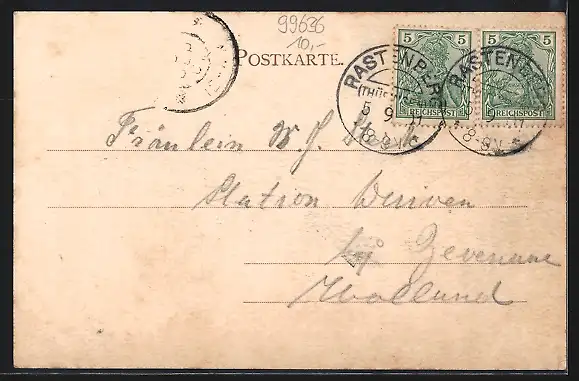 99636
10,-
POSTKARTE.
5 5 5 5
REICHSPOST REICHSPOST
RASTENBERG
(THÜRINGEN)
5 9
8-9V.
RASTENBERG
9
8-9V.
Fräulein W. J.
Station
bij Zevenaar
Holland